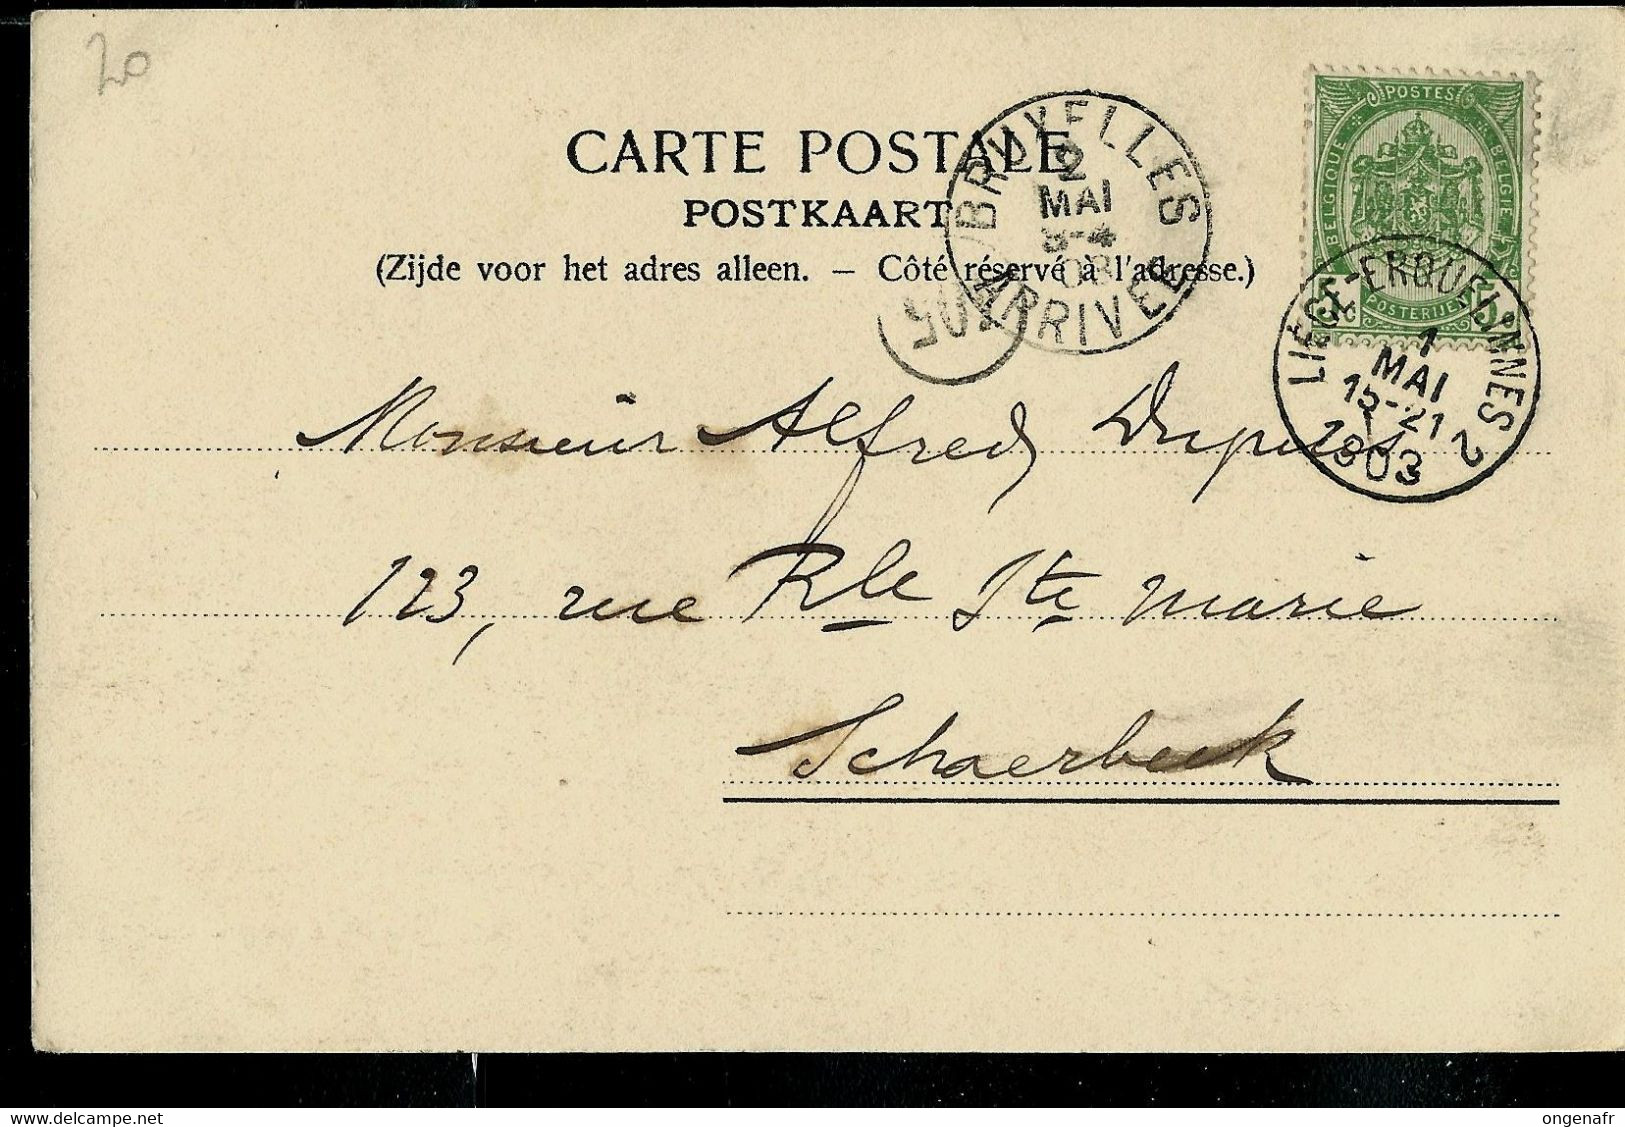 20
CARTE POSTALE
POSTKAART
(Zijde voor het adres alleen. – Côté réservé à l'adresse.)
POSTES
BELGIQUE
BELGIE
POSTERIJEN
BRUXELLES
2
MAI
03
ARRIVEE
LIÉGE-ERQUELINNES 2
1
MAI
15-21
1903
Monsieur Alfred Dupuis
123, rue Rle Ste Marie
Schaerbeek
www.delcampe.net
ongenafr